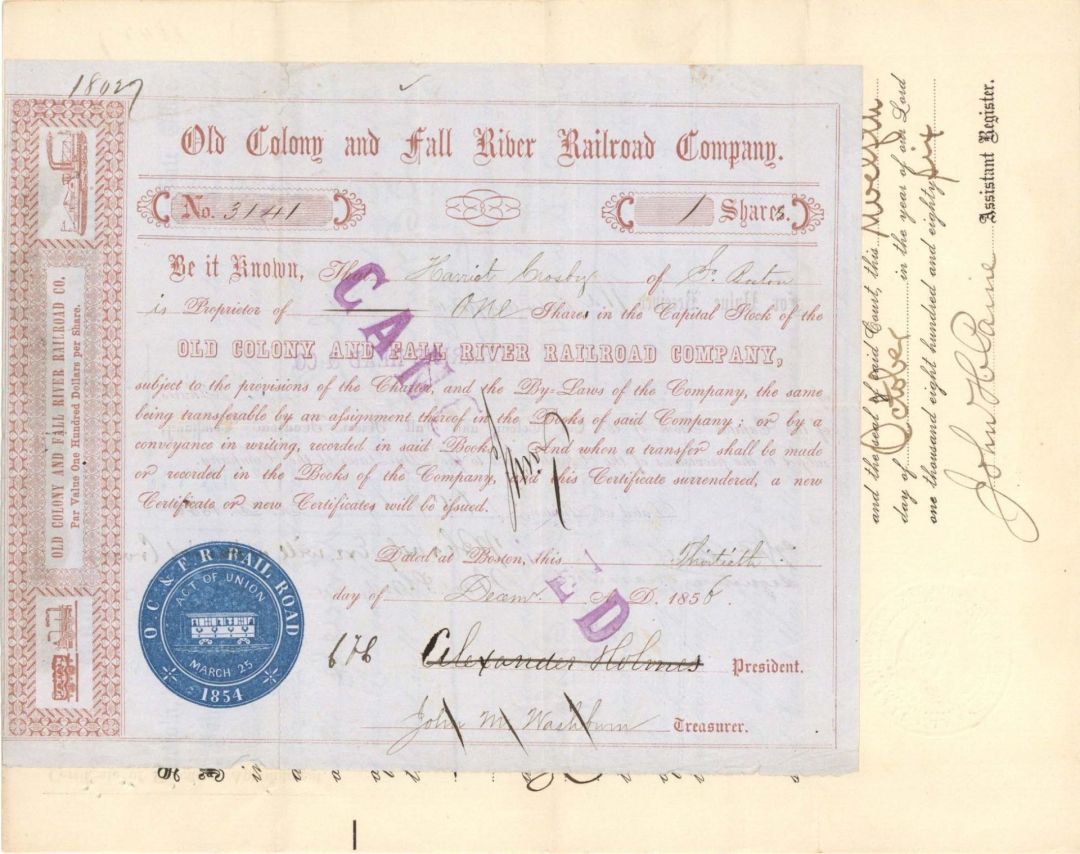 18027
Old Colony and Fall River Railroad Company.
No. 3141
1 Shares.
Be it Known, That Harriet Crosby of
is Proprietor of One Share, in the Capital Stock of the
OLD COLONY AND FALL RIVER RAILROAD COMPANY,
subject to the provisions of the Charter, and the By-Laws of the Company, the same
being transferable by an assignment thereof in the Books of said Company; or by a
conveyance in writing, recorded in said Books. And when a transfer shall be made
or recorded in the Books of the Company, and this Certificate surrendered, a new
Certificate or new Certificates will be issued.
CANCELLED
Dated at Boston, this Thirtieth
day of Decemr. A. D. 1856.
678 Alexander Holmes President.
John M. Washburn Treasurer.
O. C. & F. R. RAIL ROAD
ACT OF UNION
MARCH 25
1854
OLD COLONY AND FALL RIVER RAILROAD CO.
Par Value One Hundred Dollars per Share.
and the seal of said Court, this twelfth
day of October in the year of our Lord
one thousand eight hundred and eighty six
John H Paine Assistant Register.